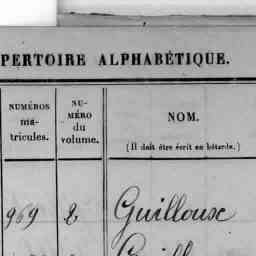 PERTOIRE ALPHABÉTIQUE.
NUMÉROS
ma-
tricules.
NU-
MÉRO
du
volume.
NOM.
(Il doit être écrit en bâtarde.)
969 2 Guilloux